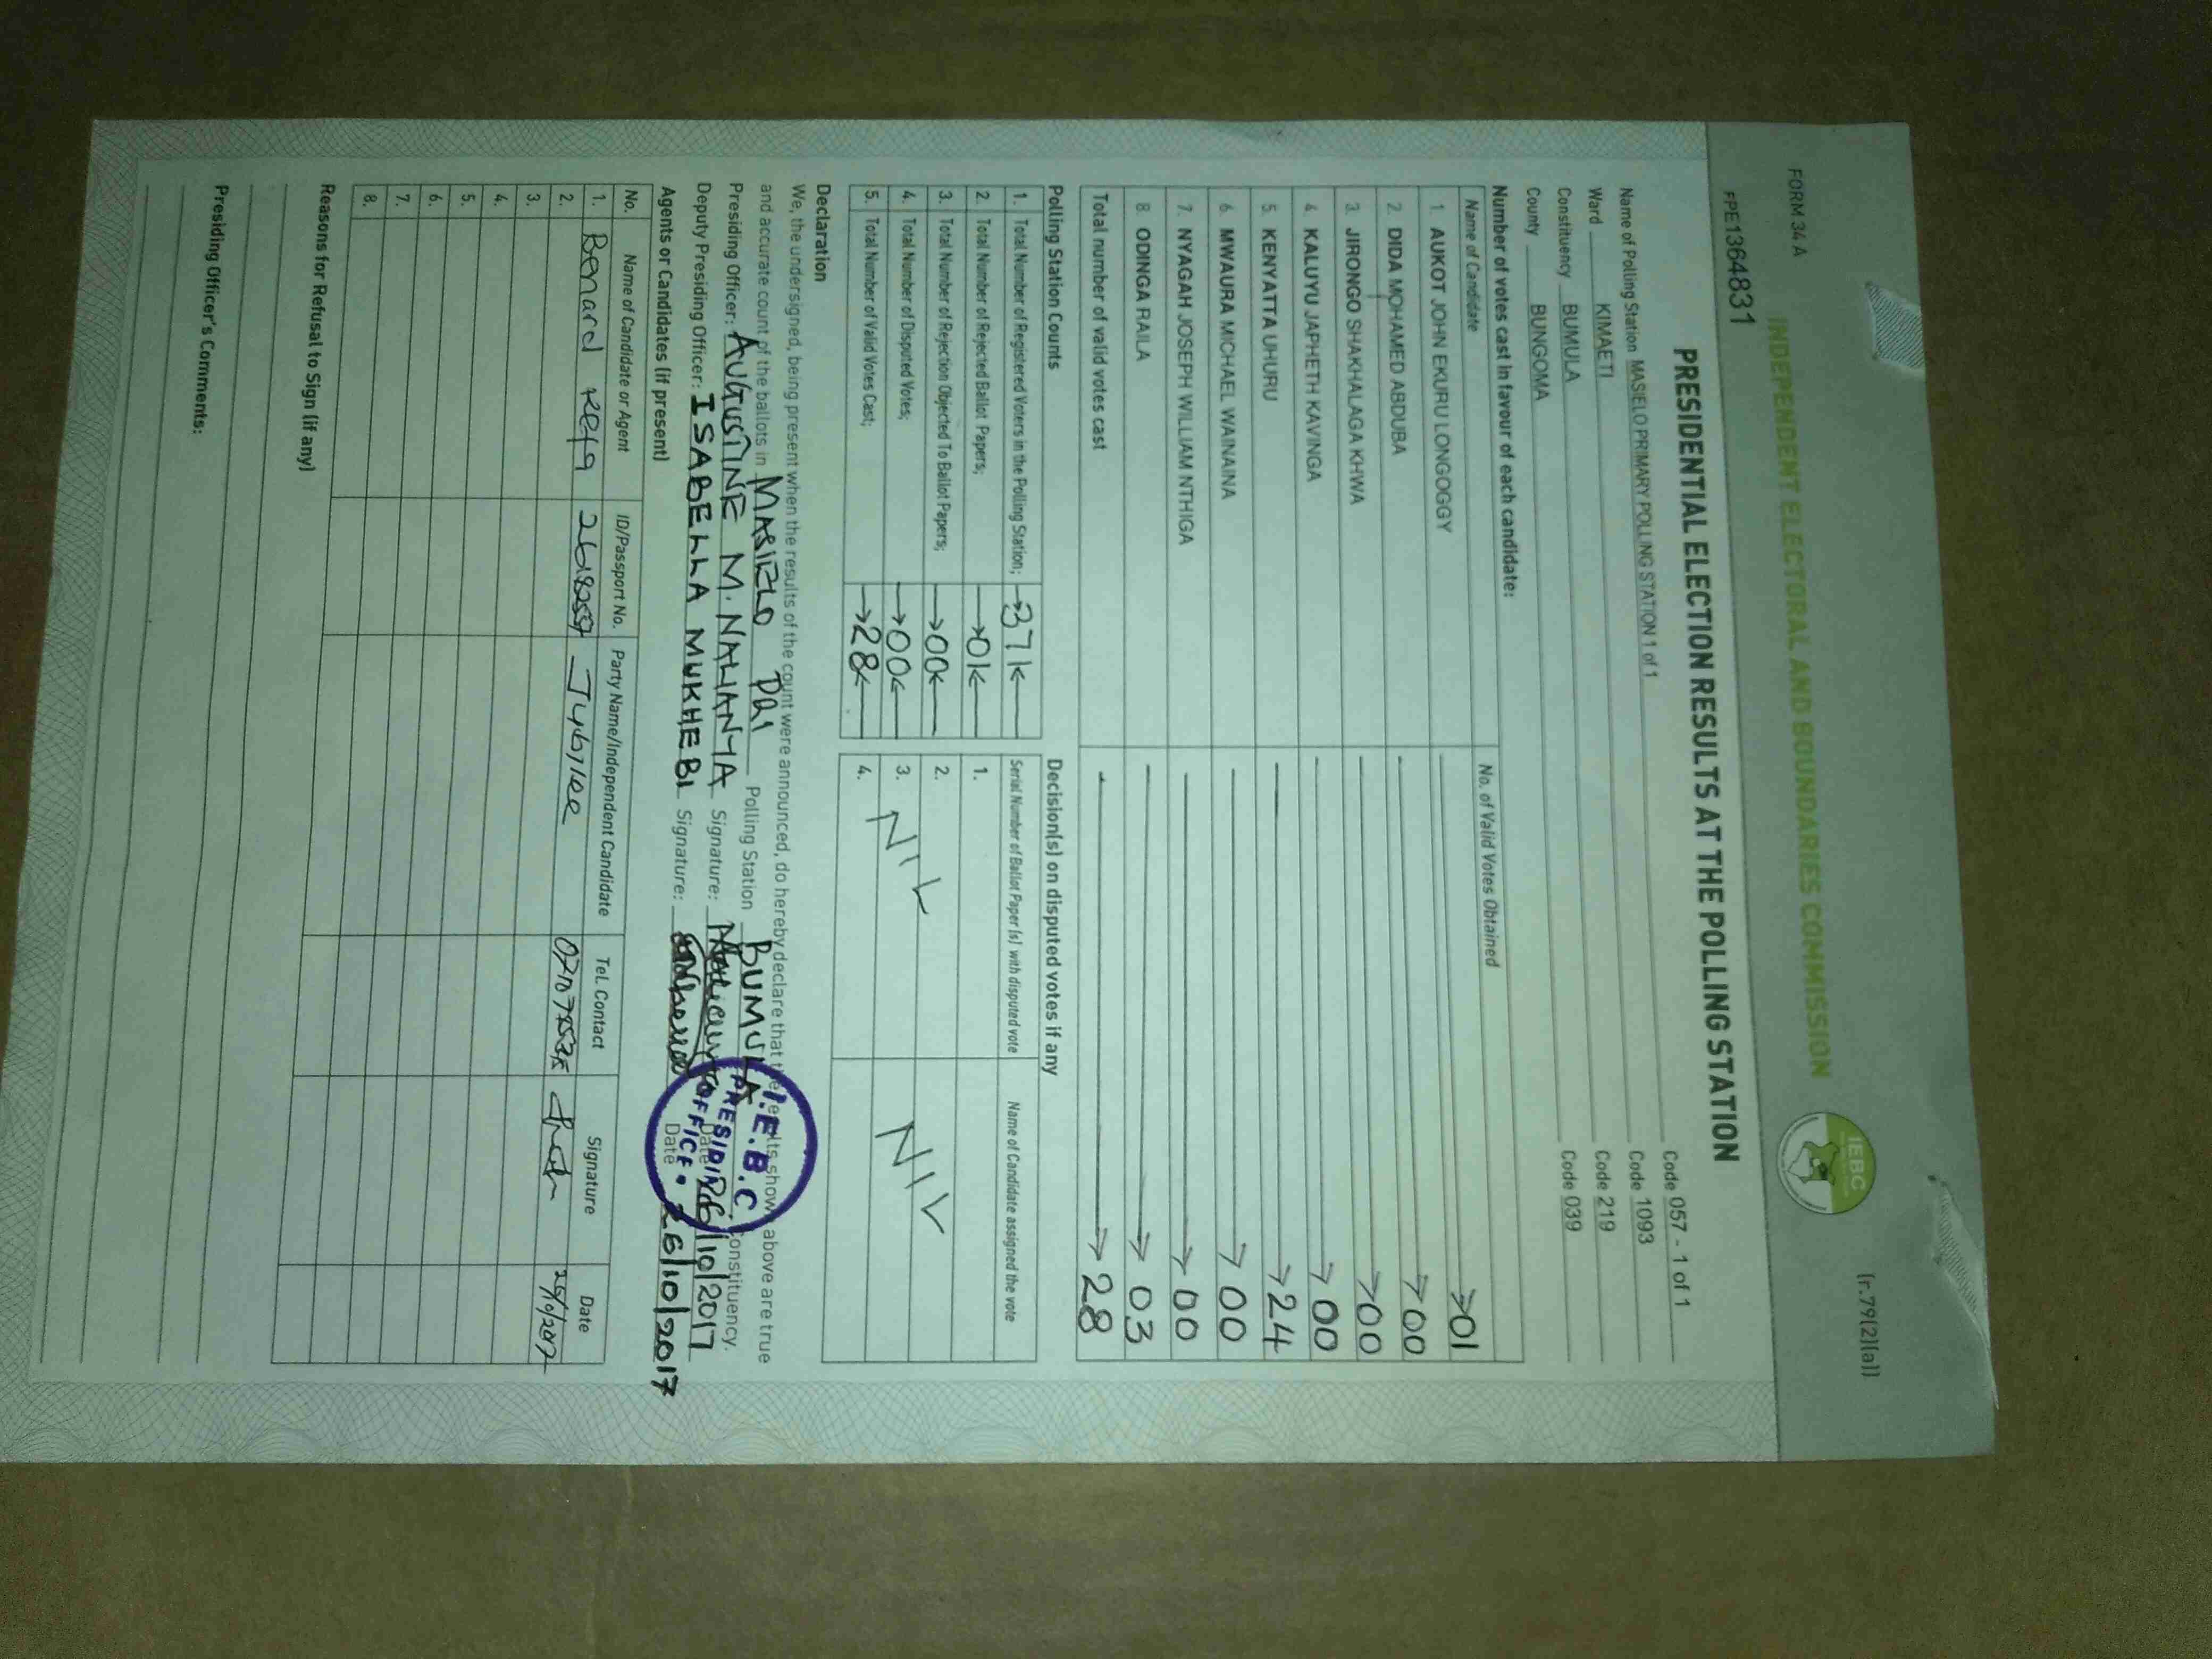 FORM 34 A
(r.79(2)(a))
INDEPENDENT ELECTORAL AND BOUNDARIES COMMISSION
IEBC
FPE1364831
PRESIDENTIAL ELECTION RESULTS AT THE POLLING STATION
Name of Polling Station MASIELO PRIMARY POLLING STATION 1 of 1 Code 057 - 1 of 1
Ward KIMAETI Code 1093
Constituency BUMULA Code 219
County BUNGOMA Code 039
Number of votes cast in favour of each candidate:
Name of Candidate No. of Valid Votes Obtained
1. AUKOT JOHN EKURU LONGOGGY 01
2. DIDA MOHAMED ABDUBA 00
3. JIRONGO SHAKHALAGA KHWA 00
4. KALUYU JAPHETH KAVINGA 00
5. KENYATTA UHURU 24
6. MWAURA MICHAEL WAINAINA 00
7. NYAGAH JOSEPH WILLIAM NTHIGA 00
8. ODINGA RAILA 03
Total number of valid votes cast 28
Polling Station Counts Decision(s) on disputed votes if any
1. Total Number of Registered Voters in the Polling Station; 371 Serial Number of Ballot Paper (s) with disputed vote Name of Candidate assigned the vote
2. Total Number of Rejected Ballot Papers; 01 1.
3. Total Number of Rejection Objected To Ballot Papers; 00 2.
4. Total Number of Disputed Votes; 00 3. NIL NIL
5. Total Number of Valid Votes Cast; 28 4.
Declaration
We, the undersigned, being present when the results of the count were announced, do hereby declare that the results shown above are true
and accurate count of the ballots in PRI Polling Station BUMULA Constituency.
Presiding Officer: AUGUSTINE M. NALIANYA Signature: Date 26/10/2017
Deputy Presiding Officer: ISABELLA MUKHEBI Signature: Date 26/10/2017
I.E.B.C.
PRESIDING
OFFICE
Agents or Candidates (if present)
No. Name of Candidate or Agent ID/Passport No. Party Name/Independent Candidate Tel. Contact Signature Date
1. Benard Jubilee
2.
3.
4.
5.
6.
7.
8.
Reasons for Refusal to Sign (if any)
Presiding Officer's Comments: